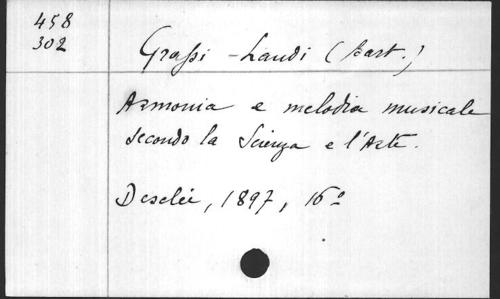 458
302
Grassi-Landi (Bart.)
Armonia e melodia musicale
secondo la Scienza e l'Arte.
Desclée, 1897, 16º